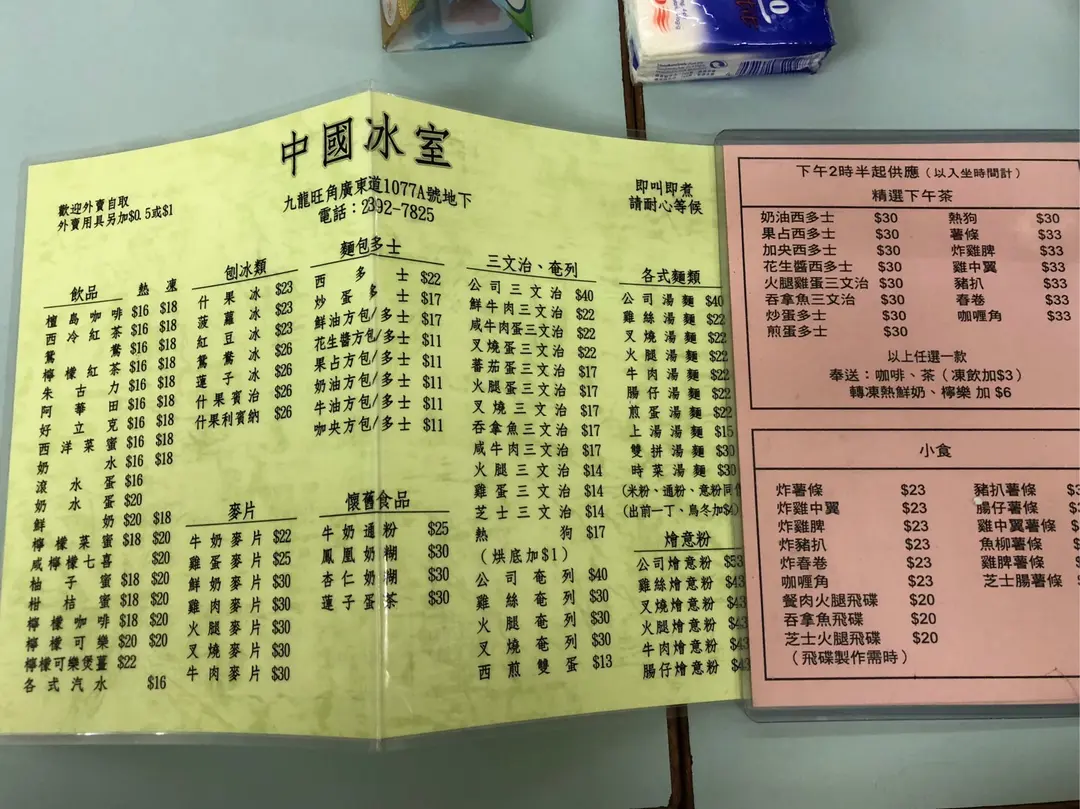 中國冰室
九龍旺角廣東道1077A號地下
電話：2392-7825
歡迎外賣自取
外賣用具另加$0.5或$1
即叫即煮
請耐心等候
飲品 熱 凍
檀島咖啡 $16 $18
西冷紅茶 $16 $18
鴛鴦 $16 $18
檸檬紅茶 $16 $18
朱古力 $16 $18
阿華田 $16 $18
好立克 $16 $18
西洋菜蜜 $16 $18
奶水 $16 $18
滾水蛋 $16
奶水蛋 $20
鮮奶 $20 $18
檸檬菜蜜 $18 $20
咸檸檬七喜 $20
柚子蜜 $18 $20
柑桔蜜 $18 $20
檸檬咖啡 $18 $20
檸檬可樂 $20 $20
檸檬可樂煲薑 $22
各式汽水 $16
刨冰類
什果冰 $23
菠蘿冰 $23
紅豆冰 $23
鴛鴦冰 $26
蓮子冰 $26
什果賓治 $26
什果利賓納 $26
麥片
牛奶麥片 $22
雞蛋麥片 $25
鮮奶麥片 $30
雞肉麥片 $30
火腿麥片 $30
叉燒麥片 $30
牛肉麥片 $30
麵包多士
西多士 $22
炒蛋多士 $17
鮮油方包/多士 $17
花生醬方包/多士 $11
果占方包/多士 $11
奶油方包/多士 $11
牛油方包/多士 $11
咖央方包/多士 $11
懷舊食品
牛奶通粉 $25
鳳凰奶糊 $30
杏仁奶糊 $30
蓮子蛋茶 $30
三文治、奄列
公司三文治 $40
鮮牛肉三文治 $22
咸牛肉蛋三文治 $22
叉燒蛋三文治 $22
蕃茄蛋三文治 $17
火腿蛋三文治 $17
叉燒三文治 $17
吞拿魚三文治 $17
咸牛肉三文治 $17
火腿三文治 $14
雞蛋三文治 $14
芝士三文治 $14
熱狗 $17
(烘底加$1)
公司奄列 $40
雞絲奄列 $30
火腿奄列 $30
叉燒奄列 $30
西煎雙蛋 $13
各式麵類
公司湯麵 $40
雞絲湯麵 $22
叉燒湯麵 $22
火腿湯麵 $22
牛肉湯麵 $22
腸仔湯麵 $22
煎蛋湯麵 $22
上湯湯麵 $15
雙拼湯麵 $30
時菜湯麵 $30
(米粉、通粉、意粉同價
(出前一丁、烏冬加$4)
燴意粉
公司燴意粉 $53
雞絲燴意粉 $43
叉燒燴意粉 $43
火腿燴意粉 $43
牛肉燴意粉 $43
腸仔燴意粉 $43
下午2時半起供應（以入坐時間計）
精選下午茶
奶油西多士 $30 熱狗 $30
果占西多士 $30 薯條 $33
加央西多士 $30 炸雞脾 $33
花生醬西多士 $30 雞中翼 $33
火腿雞蛋三文治 $30 豬扒 $33
吞拿魚三文治 $30 春卷 $33
炒蛋多士 $30 咖喱角 $33
煎蛋多士 $30
以上任選一款
奉送：咖啡、茶（凍飲加$3）
轉凍熱鮮奶、檸樂 加 $6
小食
炸薯條 $23 豬扒薯條
炸雞中翼 $23 腸仔薯條
炸雞脾 $23 雞中翼薯條
炸豬扒 $23 魚柳薯條
炸春卷 $23 雞脾薯條
咖喱角 $23 芝士腸薯條
餐肉火腿飛碟 $20
吞拿魚飛碟 $20
芝士火腿飛碟 $20
（飛碟製作需時）